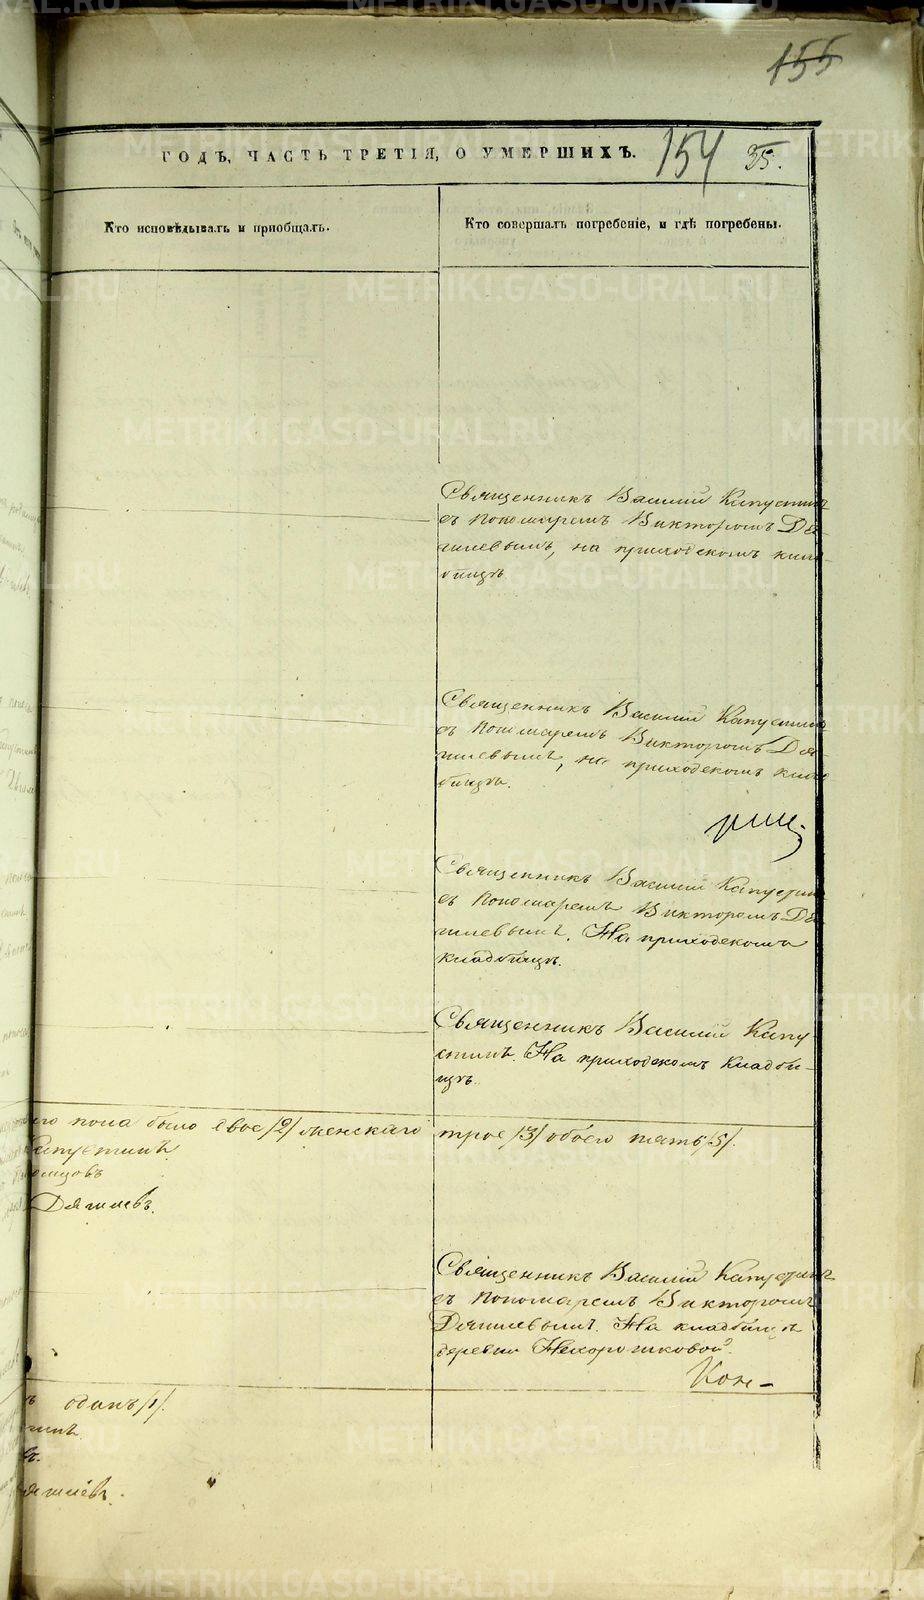 155
ГОДЪ, ЧАСТЬ ТРЕТІЯ, О УМЕРШИХЪ.
154
35.
Кто исповѣдывалъ и пріобщалъ.
Кто совершалъ погребеніе, и гдѣ погребены.
Священникъ Василий Капустинъ
съ пономаремъ Викторомъ Дя-
гилевымъ, на приходскомъ клад-
бищѣ
Священникъ Василий Капустинъ
съ пономаремъ Викторомъ Дя-
гилевымъ, на приходскомъ клад-
бищѣ.
Священникъ Василий Капустин
съ пономаремъ Викторомъ Дя-
гилевымъ. На приходскомъ
кладбищѣ.
Священникъ Василій Капу-
стинъ. На приходскомъ кладби-
щѣ.
пола было двое /2/ женскаго трое /3/ обоего пять /5/.
Капустинъ
Дягилевъ.
Священникъ Василій Капустинъ
съ пономаремъ Викторомъ
Дягилевымъ. На кладбищѣ
деревни Нехорошковой.
одинъ /1/.
METRIKI.GASO-URAL.RU